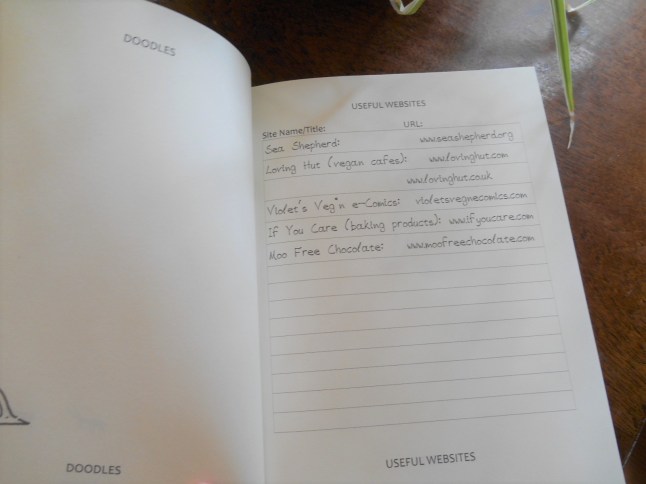 DOODLES
DOODLES
USEFUL WEBSITES
Site Name/Title: URL:
Sea Shepherd: www.seashepherd.org
Loving Hut (vegan cafes): www.lovinghut.com
www.lovinghut.co.uk
Violet's Veg*n e-Comics: violetsvegnecomics.com
If You Care (baking products): www.ifyoucare.com
Moo Free Chocolate: www.moofreechocolate.com
USEFUL WEBSITES